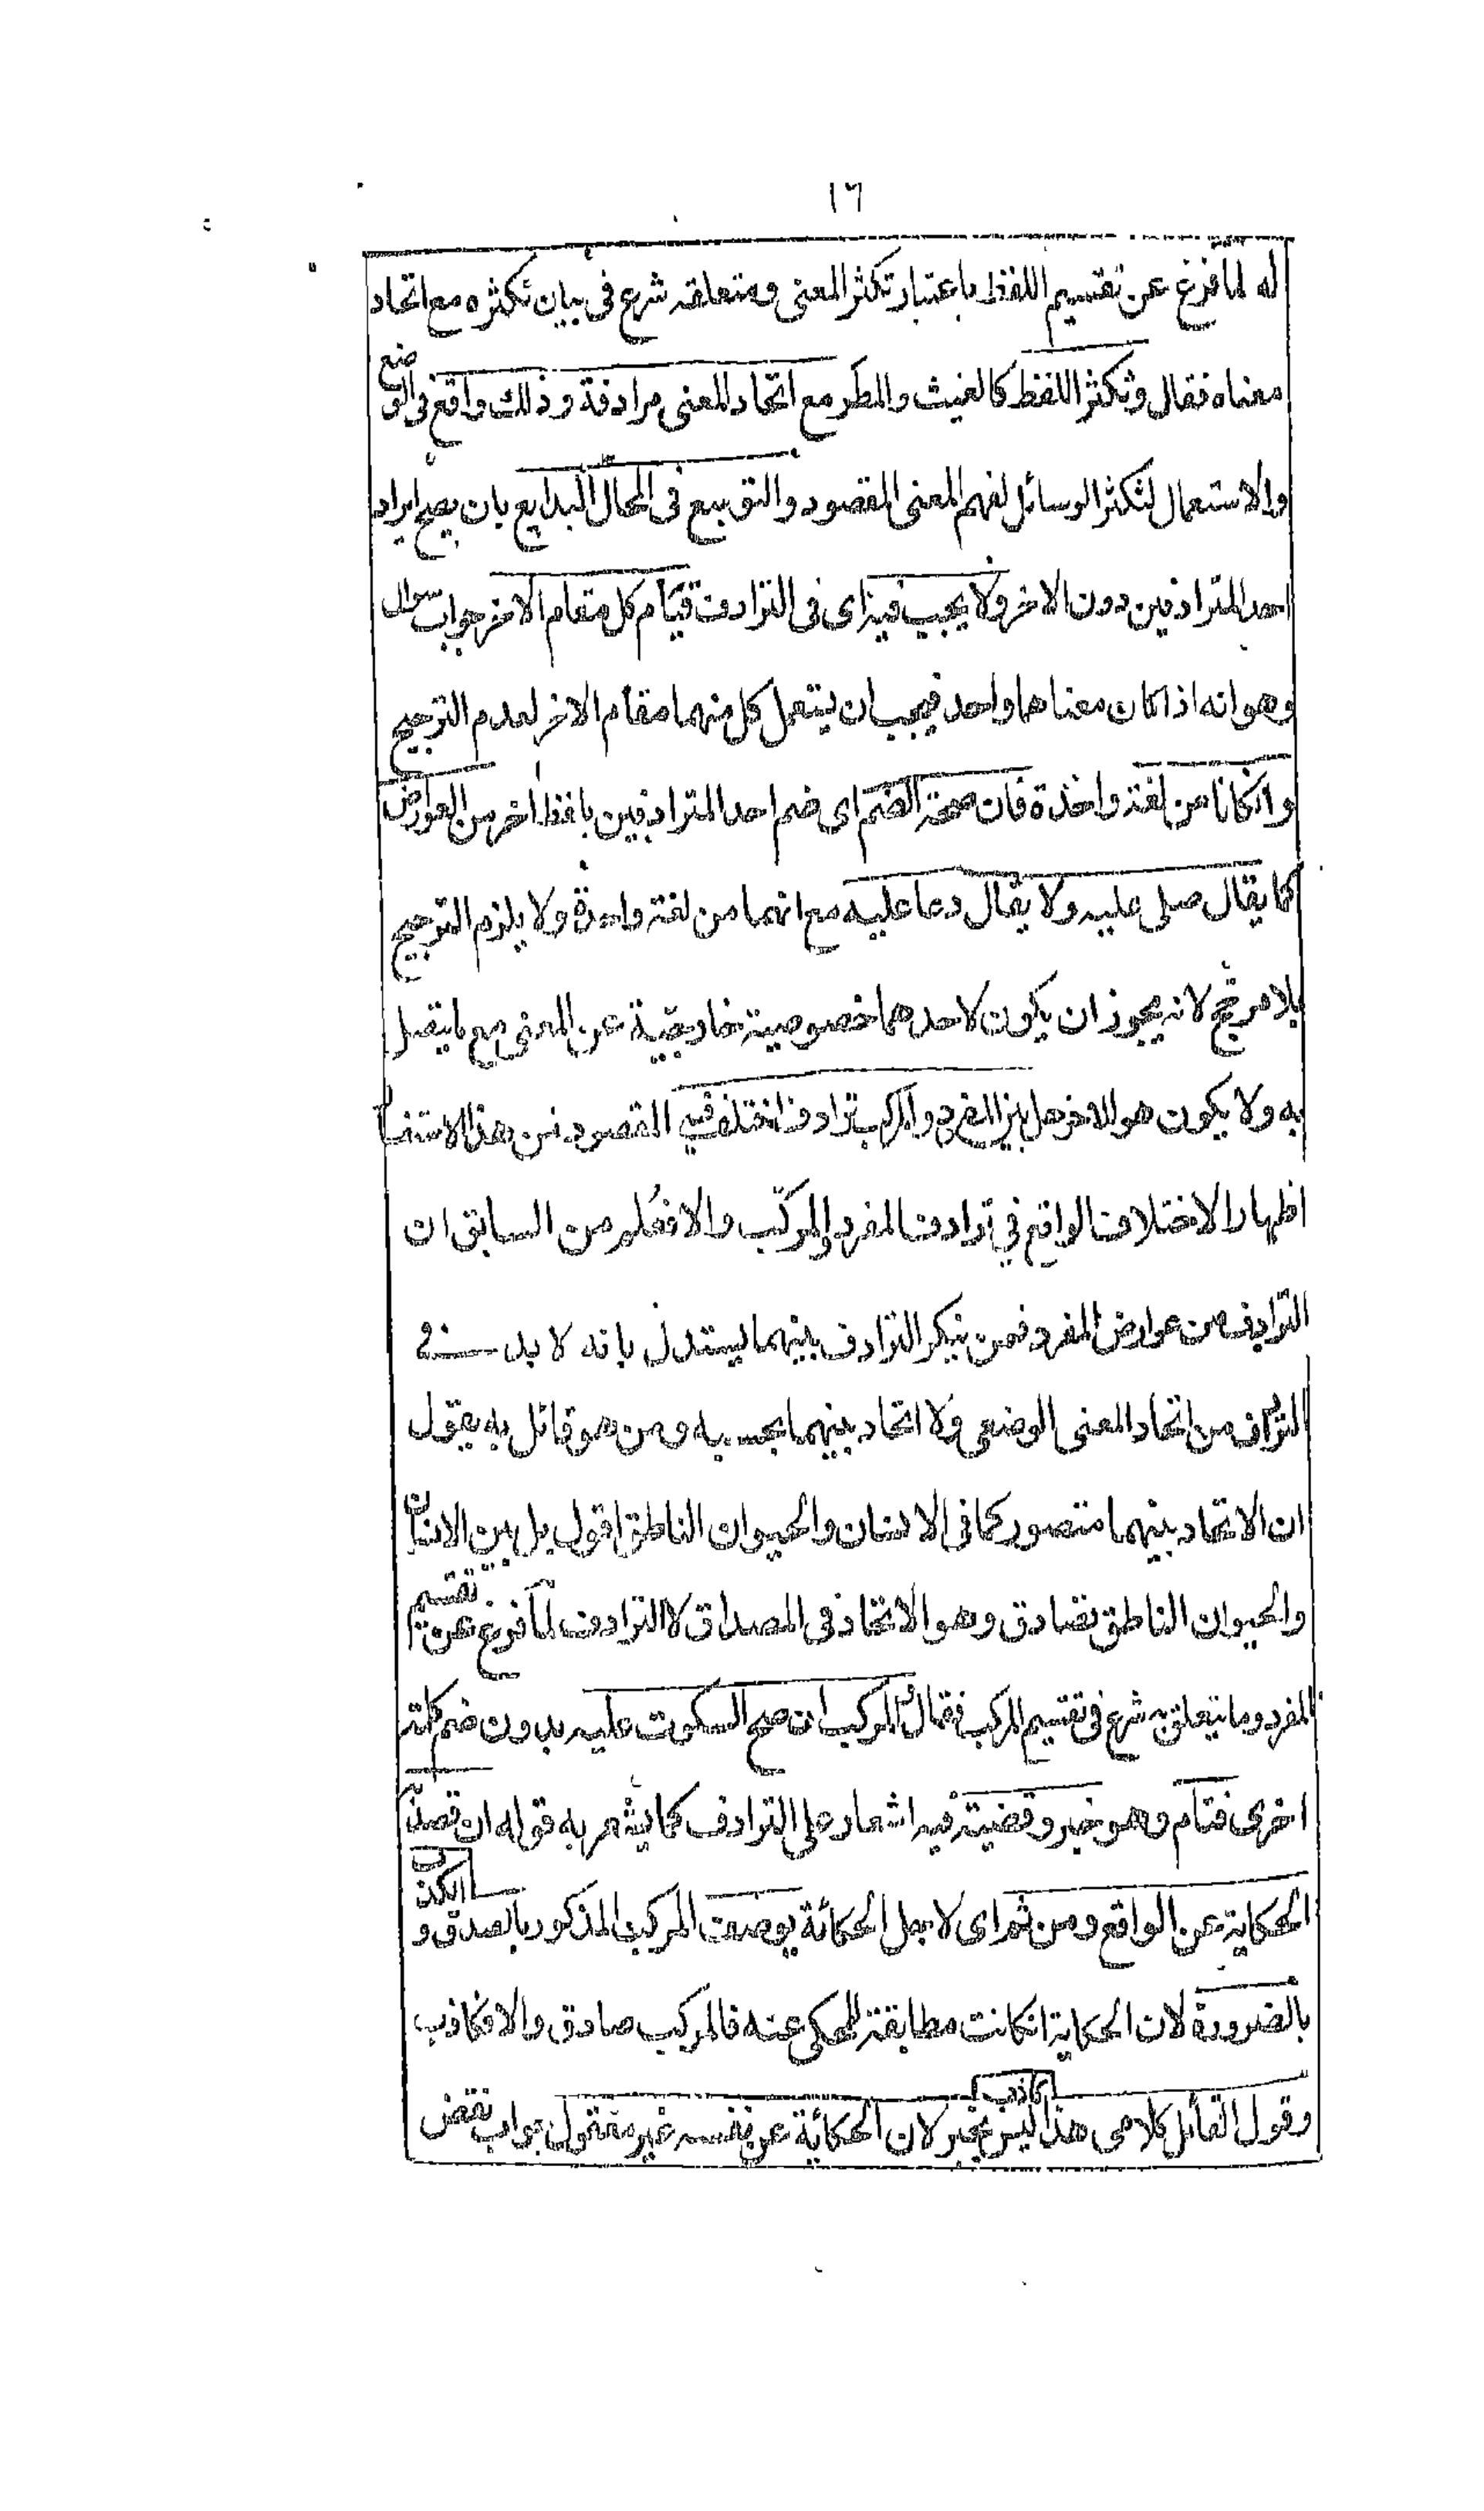 ١٦
له لما فرغ عن تقسيم اللفظ باعتبار تكثر المعنى ومتعلقه شرع فى بيان تكثره مع اتحاد
معناه فقال وتكثر اللفظ كالغيث والمطر مع اتحاد المعنى مرادفة وذلك واقع فى الوضع
والاستعمال لتكثر الوسائل لفهم المعنى المقصود والتوسيع فى المحال البدايع بان يصح ايراد
احد المترادفين دون الاخر ولا يجب فيه اى فى الترادف قيام كل مقام الاخر جواب سوال
وهو انه اذا كان معناهما واحد فيجب ان يستعمل كل منهما مقام الاخر لعدم الترجيح
وانكانا من لغة واحدة فان صحة الضم اى ضم احد المترادفين بلفظ اخر من العوارض
كما يقال صلى عليه ولا يقال دعا عليه مع انهما من لغة واحدة ولا يلزم الترجيح
بلا مرجح لانه يجوز ان يكون لاحدهما خصوصية خارجية عن المعنى مع ما يتصل
به ولا يكون هو للاخر هل بين المفرد والمركب ترادف اختلف فيه المقصود من هذا الاستفها
اظهار الاختلاف الواقع في ترادف المفرد والمركب والا فعلم من السابق ان
الترادف من عوارض المفرد فمن ينكر الترادف بينهما يستدل بانه لا بد فے
الترادف من اتحاد المعنى الوضعى ولا اتحاد بينهما بحسبه ومن هو قائل به يقول
ان الاتحاد بينهما متصور كما فى الانسان والحيوان الناطق اقول بل بين الانسان
والحيوان الناطق تصادق وهو الاتحاد فى المصداق لا الترادف لما فرغ عن تقسيم
المفرد وما يتعلق به شرع فى تقسيم المركب فقال المركب ان صح السكوت عليه بدون ضم كلمة
اخرى فتام وهو خبر وقضية فيه اشعار على الترادف كما يشعر به قوله ان قصد
الحكاية عن الواقع ومن ثم اى لاجل الحكائة يوصف المركب المذكور بالصدق والكذب
بالضرورة لان الحكاية انكانت مطابقة للمحكى عنه فالمركب صادق والا فكاذب
وقول القائل كلامى هذا كاذب ليس بخبر لان الحكائة عن نفسه غير معقول جواب نقض